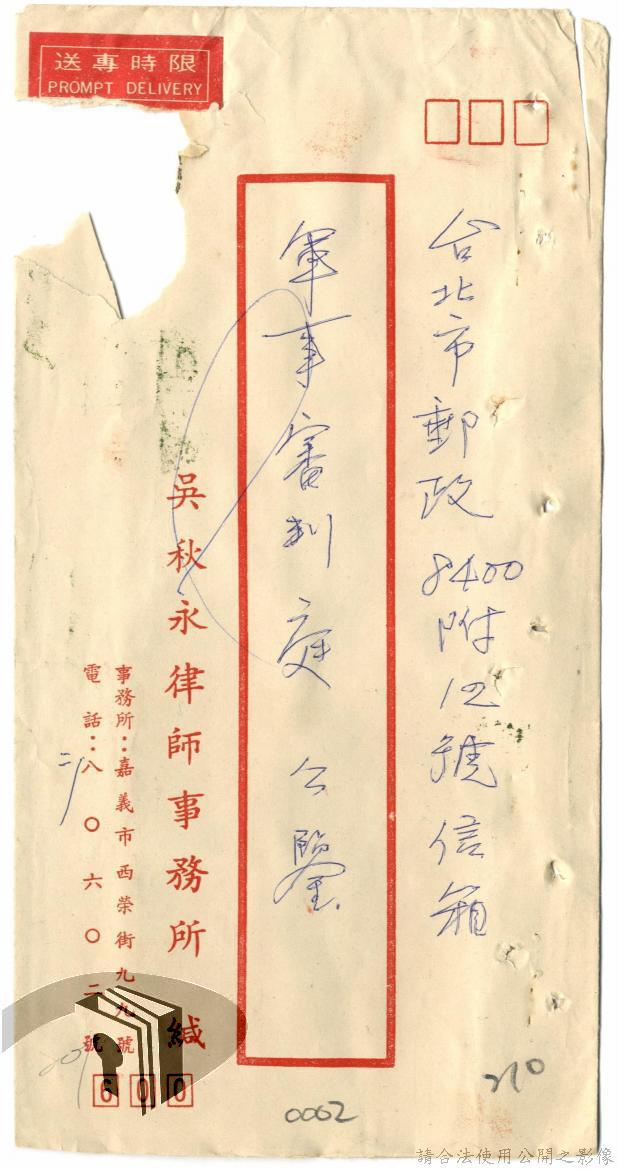 限時專送
PROMPT DELIVERY
台北市郵政8400附12號信箱
軍事審判庭 公鑒
吳秋永律師事務所 緘
事務所：嘉義市西榮街九九號
電話：八〇六〇二號
600
0002
210
請合法使用公開之影像